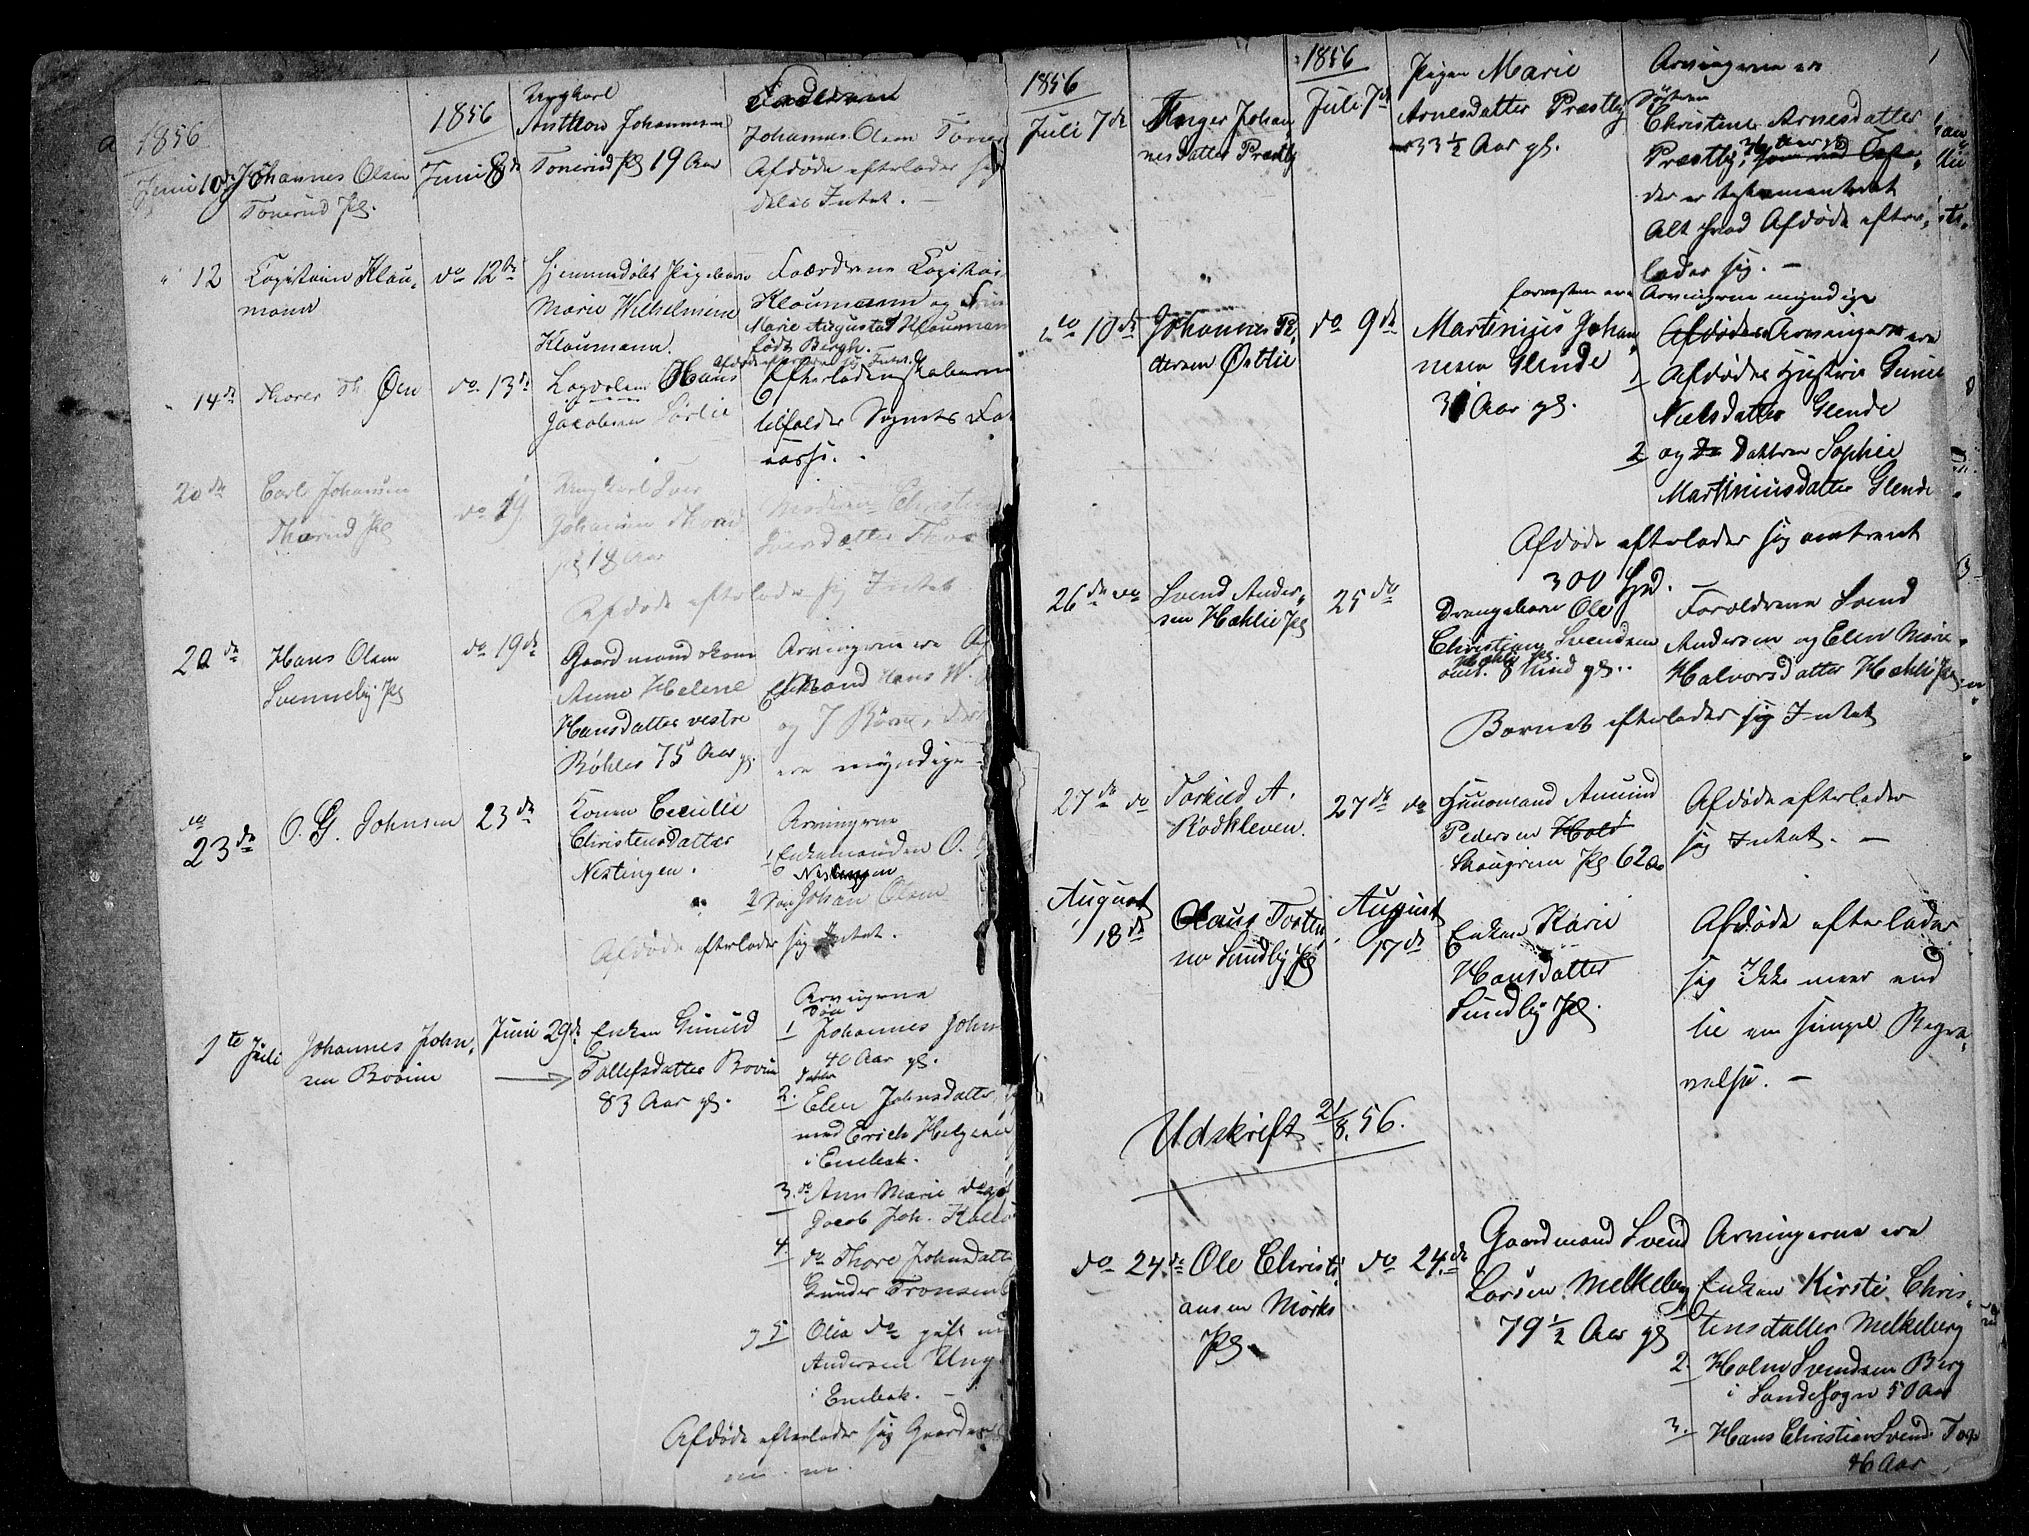 1856
Juni 10de Johannes Olsen
Tonerud Pl.
1856
Juni 8de
Ungkarl
Anthon Johannesen
Tonerud Pl 19 Aar
Forældrene
Johannes Olsen Toner
Afdøde efterlader sig
Intet. —
" 12 Capitain Klou-
mann
do 12te
Hjemmedøbt Pigebarn
Marie Wilhelmine
Kloumann.
Forældrene Capitai
Kloumann og
Marie Augusta Kloumann
født Bergh. —
Afdøde efterlader sig Intet.
14de Thorer Th. Øen
do 13de
Lægdslem Hans
Jacobsen Sørlie
Efterladenskaberne
tilfalder Sognets Fat
casse.
20de Carl Johansen
Thorud Pl
do 19
Ungkarl Iver
Johansen Thorud
Pl 18 Aar
Moderen Christine
Iversdatter Thor
Afdøde efterlader sig Intet
20de Hans Olsen
Svenneby Pl
do 19de
Gaardmandskone
Anne Helene
Hansdatter vestre
Bøhler 75 Aar gl.
Arvingerne ere
Enkemand Hans W.
og 7 Børn,
ere myndige
do
23de O. G. Johnsen
23de
Konen Cecilie
Christensdatter
Nestingen.
Arvingerne
1 Enkemanden O. G
Nestingen
2 Søn Johan Olsen
Afdøde efterlader sig Intet.
1te Juli Johannes John-
sen Bovim
Juni 29de
Enken Gunild
Tollefsdatter Bovim
83 Aar gl.
Arvingerne
Søn
1 Johannes John
40 Aar gl.
Datter
2. Elen Johnsdatter,
med Erich Helgesen
i Enebak.
3. do Ann Marie do
Jacob Joh.
4 do Thore Johnsdatt
Gunder Tronsen
5 Olia do gift m
Andersen Ung
i Enebak. —
Afdøde efterlader sig Gaarden
1856
Juli 7de Inger Johan
nesdatter Præstly
1856
Juli 7de
Pigen Marie
Arnesdatter Præstly
33 ½ Aar gl.
Arvingerne er
Søsteren
Christene Arnesdatter
Præstly, 36 Aar gl
der er testamenteret
Alt hvad Afdøde efter-
lader sig. —
do 10de Johannes Pe
dersen Østlie
do 9de
Martinius Johan
nesen Glende
31 Aar gl.
forresten ere Arvingerne myndige
Afdødes Arvinger ere
1 Afdødes Hustrue Gunil
Nielsdatter Glende
2 og Datteren Sophie
Martiniusdatter Glende
Afdøde efterlader sig omtrent
300 Spd.
26de do Svend Ander-
sen Hæhlie Pl
25 do
Drengebarn Ole
Christian Svendsen
Hæhli Pl.
omt. 8 gl.
Forældrene Svend
Andersen og Elen Marie
Halvorsdatter Hæhli Pl
Barnet efterlader sig Intet
27de do Torkild A.
Rodkleven.
27de do
Huusmand Amund
Pedersen Hols
Skougrim Pl 62 Aa
Afdøde efterlader
sig Intet. —
August
18de Claus Torten
no Sundby Pl
August
17de
Enken Karie
Hansdatter
Sundby Pl.
Afdøde efterlader
sig Ikke meer end
til en simpel Begra-
velse. —
Udskrift 21/8. 56.
do 24de Ole Christi
ansen Mørks
Pl.
do 24de
Gaardmand Svend
Larsen Melkeberg
79 ½ Aar gl
Arvingerne ere
Enken Kirsti Chris-
tensdatter Melkeberg
2. Holm Svendsen Berg
i Sande Sogn 50 Aar
3. Hans Christian Svend. Top
46 Aar